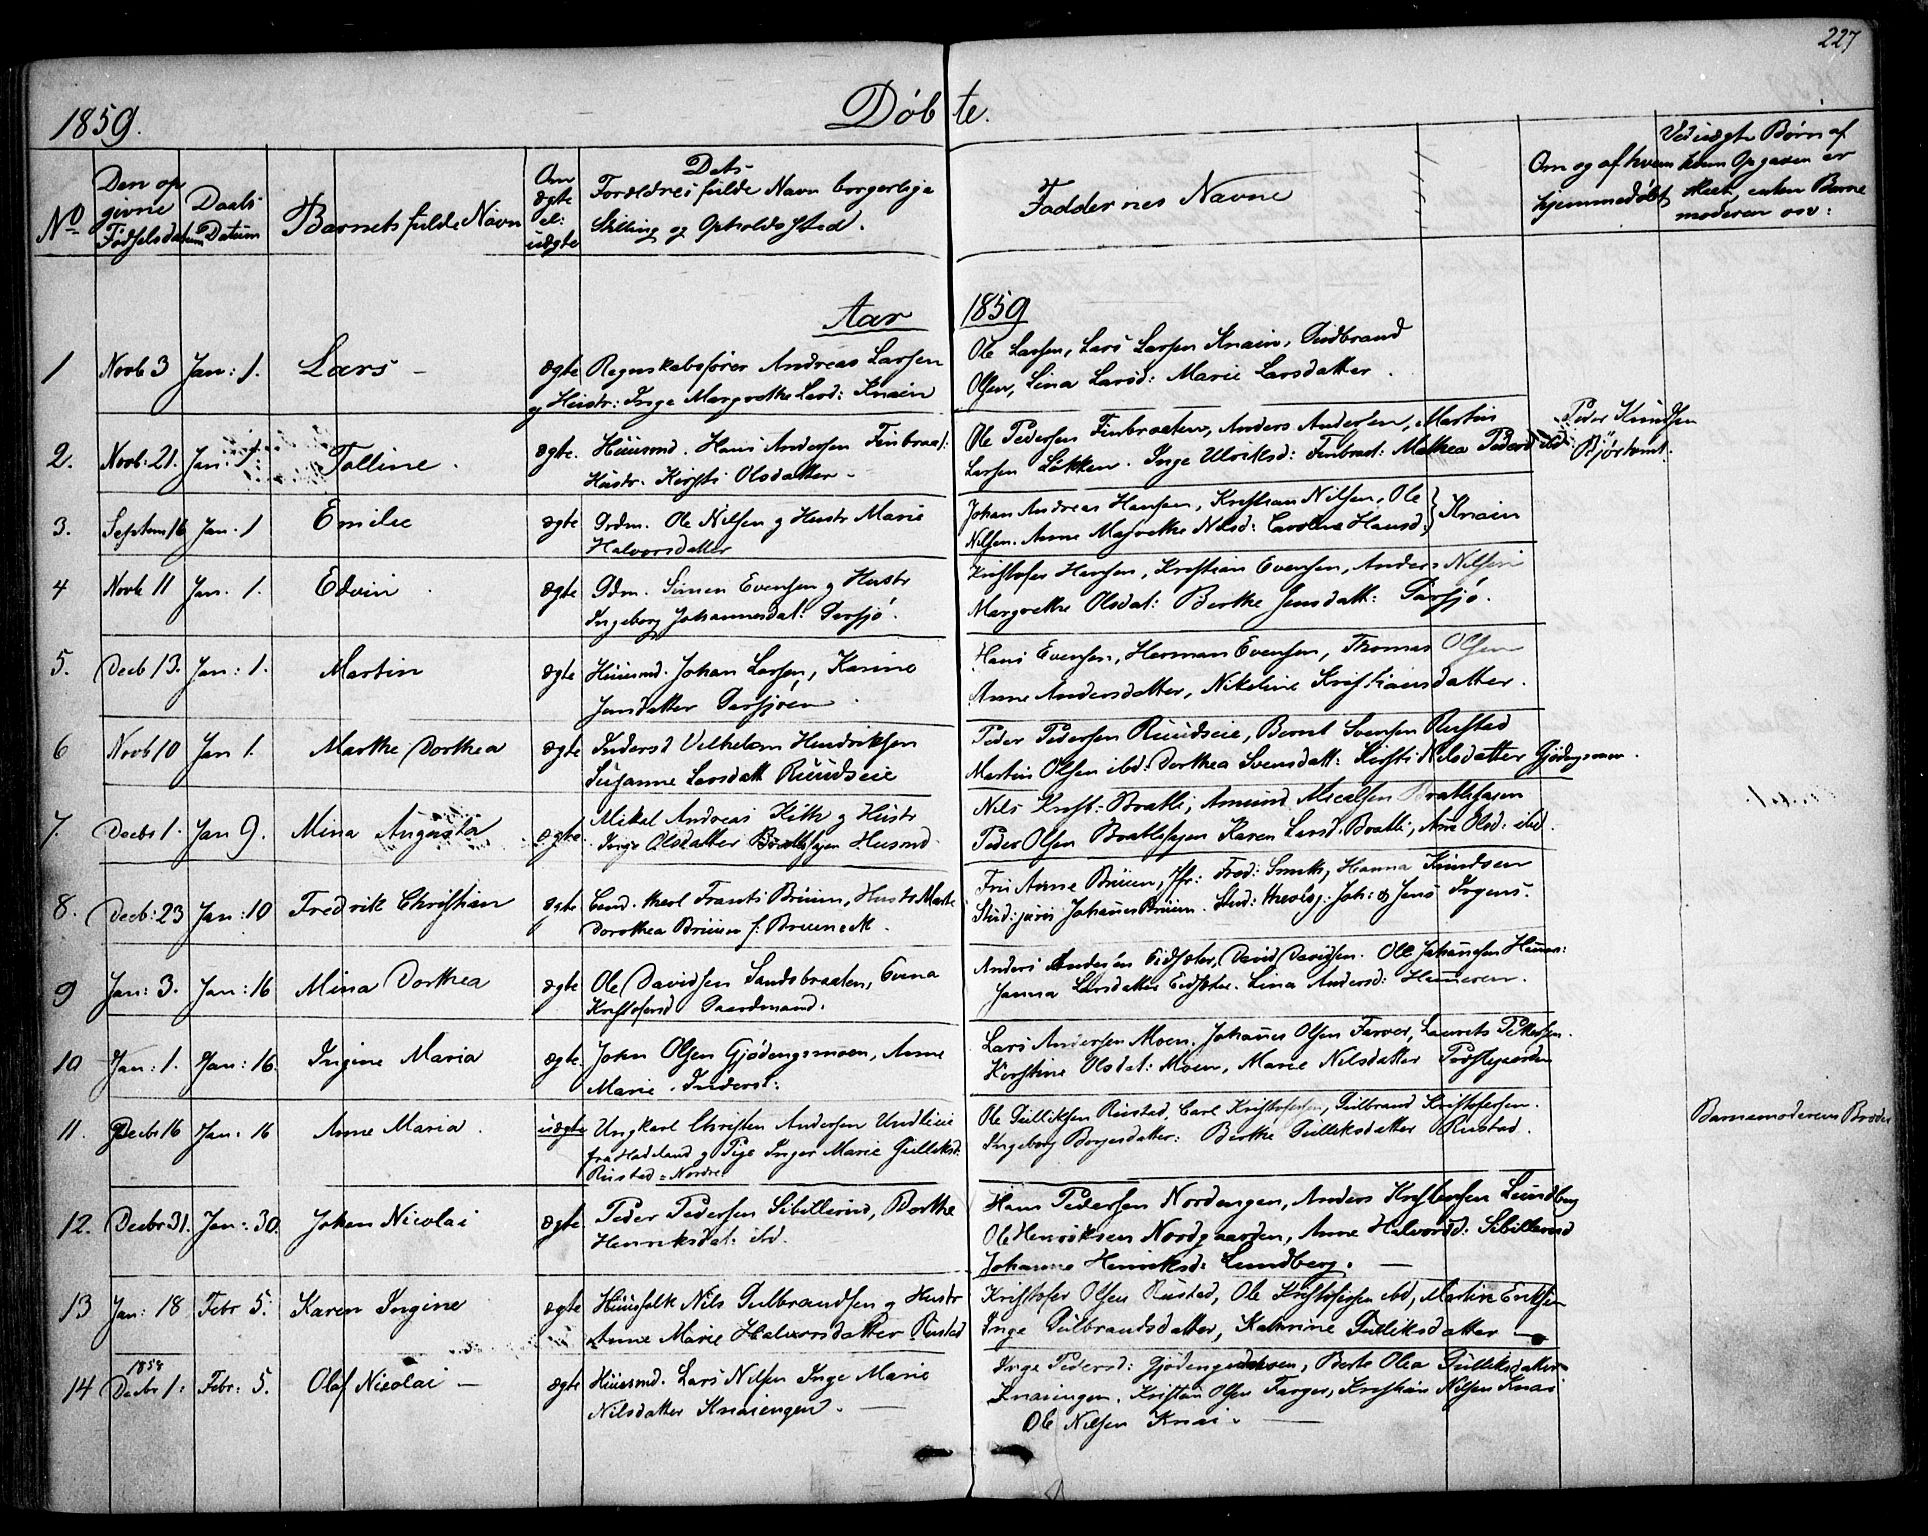 227
1859.
Døbte.
No
Den op
givne
Fødselsdatum
Daabs
Datum
Barnets fulde Navn
Om
ægte
el:
uægte
Dets
Forældres fulde Navn borgerlige
Stilling og Opholdssted.
Faddernes Navne
Om og af hvem
hjemmedøbt
Ved uægte Børn af
hvem Opgaven er
skeet, enten Barne
moderen osv:
Aar 1859
1 Novb 3 Jan: 1. Lars - ægte Regnskabsfører Andreas Larsen
og Hustr: Inge Margrethe Larsd: Knain
Ole Larsen, Lars Larsen Knain, Gudbrand
Olsen, Lina Larsd: Marie Larsdatter.
2. Novb. 21. Jan: 1. Talline. ægte. Huusmd. Hans Andersen Finbraat:
Hustr. Kirsti Olsdatter -
Ole Pedersen Finbraaten, Anders Andersen, Martin
Larsen Løkken. Inge Ulriksd: Finbraat: Mathea Pedersd ibd:
Peder Knudsen
Bjørtomt:
3. Septem 16 Jan. 1 Emilie ægte Grdm. Ole Nilsen og Hustr Marie
Halvorsdatter
Johan Andreas Hansen, Kristian Nilsen, Ole
Nilsen. Anne Magrethe Nilsd: Caroline Hansd: } Knain
4 Novb 11 Jan. 1. Edvin. ægte Gdm. Simen Evensen og Hustr
Ingeborg Johannesdat: Gersjø.
Kristofer Hansen, Kristian Evensen, Anders Nilsen
Margrethe Olsdat: Berthe Jensdatt: Gersjø.
5. Decb 13. Jan: 1. Martin ægte Huusmd. Johan Larsen, Karine
Jensdatter Gersjøen.
Hans Evensen, Herman Evensen, Thomas Olsen
Anne Andersdatter, Nikoline Kristiansdatter.
6 Novb 10 Jan 1. Marthe Dorthea ægte Inderst Vilhelm Hendriksen
Susanne Larsdatt Ruudseie
Peder Pedersen Ruudseie, Bernt Svensen Rustad
Martin Olsen ibd: Dorthea Svensdatt: Kirsti Nilsdatter Gjødingsmoen.
7. Decbr 1. Jan 9. Mina Augusta ægte. Mikel Andreas Kith og Hustr
Inge Olsdatter Bratlihagen Husmd.
Nils Krist: Bratli, Amund Micalsen Bratlihagen
Peder Olsen Bratlihagen Karen Larsd. Bratli, Ane Olsd: ibd.
8. Decb: 23 Jan: 10 Fredrik Christian ægte Cand. theol Frants Bruun, Hustr Marthe
Dorothea Bruun f: Bruun.
Fru Anne Bruun, Jfr: Fred: Smith, Hanna Knudsen
Stud: juris Johannes Bruun. Stud: theolog: Joh: & Jens Irgens.
9 Jan: 3. Jan: 16 Mina Dorthea ægte Ole Davidsen Sandsbraaten, Evena
Kristofersd Gaardmand.
Anders Andersen Eidsæter, David Davidsen. Ole Johannesen Hamer:
Janna Larsdatter Eidsæter. Lina Andersd: Hameren.
10 Jan: 1. Jan: 16. Ingine Maria ægte. John Olsen Gjødengsmoen, Anne
Marie. Inderst:
Lars Andersen Moen. Johannes Olsen Farver, Laurets Pettersen.
Kerstine Olsdat: Moen, Marie Nilsdatter Præstegaarden
11. Decbr 16 Jan: 16 Anne Maria. uægte Ungkarl Christen Andersen Undlieie
fra Hadeland og Pige Inger Marie Gulliksd:
Rustad = Nordre
Ole Gulliksen Rustad. Carl Kristofersen, Gulbrand Kristofersen.
Ingeborg Borgersdatter: Berthe Gulliksdatter Rustad.
Barnemoderens Broder
12. Decbr 31. Jan: 30. Johan Nicolai ægte. Peder Pedersen Sibillerud, Berthe
Henriksdat: ibd.
Hans Pedersen Nordengen, Anders Kristensen Lundberg
Ole Henriksen Nordgaarden, Anne Halvorsd: Sibillerud
Johanne Henriksd: Lundberg. -
13 Jan: 18 Febr 5. Karen Ingine ægte Huusfolk Nils Gulbrandsen og Hustr
Anne Marie Halvorsdatter Rustad
Kristofer Olsen Rustad, Ole Kristofersen ibd, Martin Eriksen
Inge Gulbrandsdatter, Kathrine Gulliksdatter -
14 1858 Decbr 1: Febr: 5. Olaf Nicolai - ægte Huusmd. Lars Nilsen Inge Marie
Nilsdatter Knaiengen. -
Inge Pedersd: Gjødengsmoen, Berte Olea Gulliksdatter
Knaiengen. Kristian Olsen Farger, Kristian Nilsen Knai
Ole Nilsen Knai. -